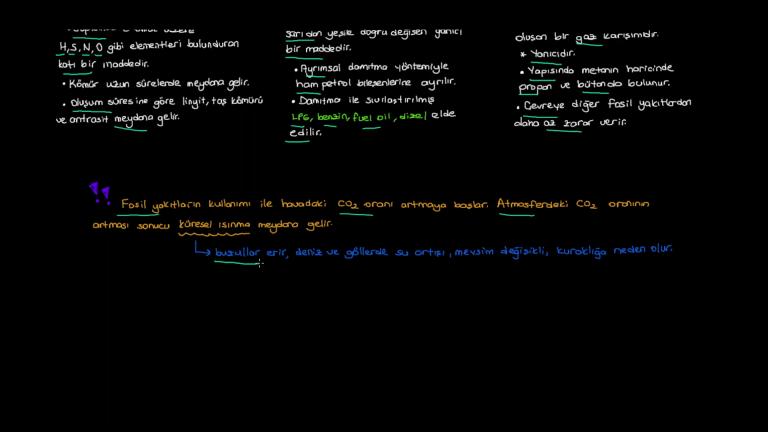 H, S, N, O gibi elementleri bulunduran
katı bir maddedir.
• Kömür uzun sürelerde meydana gelir.
• Oluşum süresine göre linyit, taş kömürü
ve antrasit meydana gelir.
sarıdan yeşile doğru değişen yanıcı
bir maddedir.
• Ayrımsal damıtma yöntemiyle
ham petrol bileşenlerine ayrılır.
• Damıtma ile sıvılaştırılmış
LPG, benzin, fuel oil, dizel elde
edilir.
oluşan bir gaz karışımıdır.
* Yanıcıdır.
• Yapısında metanın haricinde
propan ve bütanda bulunur.
• Çevreye diğer fosil yakıtlardan
daha az zarar verir.
!! Fosil yakıtların kullanımı ile havadaki CO2 oranı artmaya başlar. Atmosferdeki CO2 oranının
artması sonucu küresel ısınma meydana gelir.
↳ buzullar erir, deniz ve göllerde su artışı, mevsim değişikli, kuraklığa neden olur.